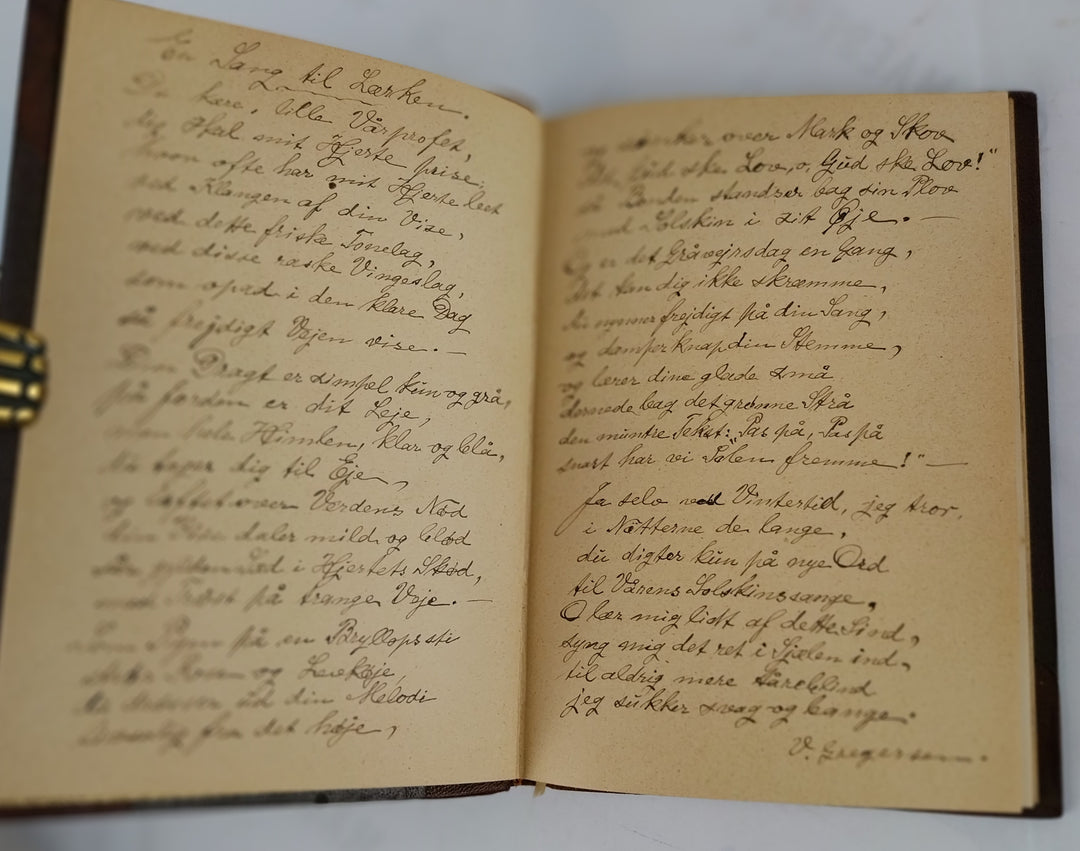 En Sang til Lærken.
Du kære, lille Vårprofet,
dig skal mit Hjerte prise,
hvor ofte har mit Hjerte leet
ved Klangen af din Vise,
ved dette friske Tonelag,
ved disse raske Vingeslag,
som opad i den klare Dag
så frejdigt Vejen vise. —
Din Dragt er simpel kun og grå,
på Jorden er dit Leje,
Himlen, klar og blå,
tager dig til Eje,
og løftet over Verdens Nød
daler mild og blød
i Hjertets Skød,
med Trøst på trange Veje. —
på en Bryllopssti
og Løvkøje,
ud din Melodi
fra det høje,
og over Mark og Skov
Gud ske Lov, o, Gud ske Lov!"
så Bonden standser bag sin Plov
med Solskin i sit Øje. —
Og er det Gråvejrsdag en Gang,
det kan dig ikke skræmme,
du nynner frejdigt på din Sang,
og damper knap din Stemme,
og lærer dine glade små
dernede bag det grønne Strå
den muntre Tekst: "Pas på, Pas på
snart har vi Solen fremme!" —
Ja selv ved Vintertid, jeg tror,
i Nætterne de lange,
du digter kun på nye Ord
til Vårens Solskinssange,
O lær mig lidt af dette Sind,
syng mig det ret i Sjælen ind,
til aldrig mere tåreblind
jeg sukker svag og bange.
V. Gregersen.